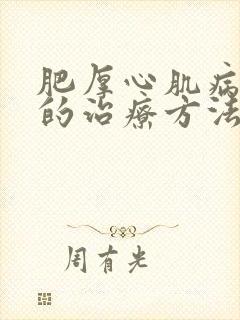 肥厚心肌病
的治疗方法
周有光